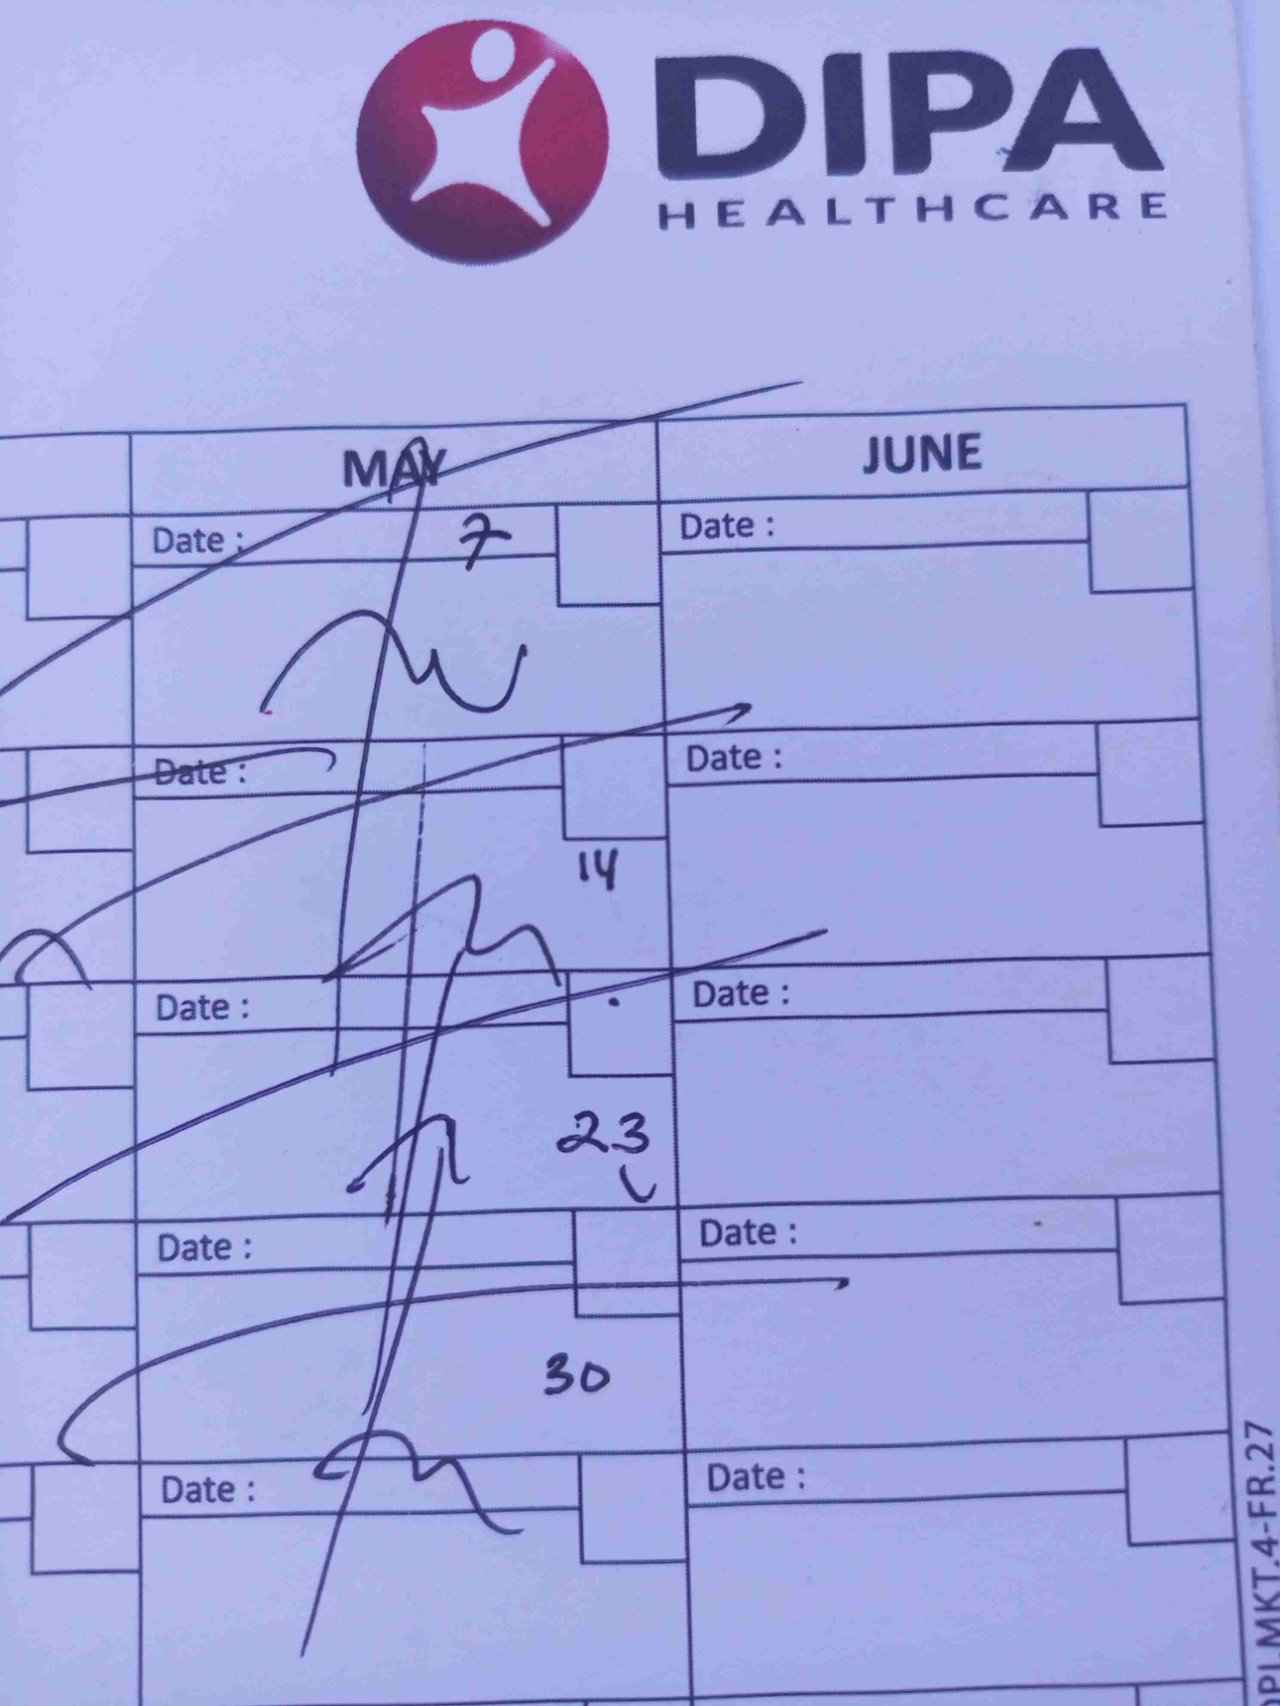 DIPA
HEALTHCARE
MAY JUNE
Date : 7 Date :
Date : Date :
14
Date : Date :
23
Date : Date :
30
Date : Date :
PI.MKT.4-FR.27